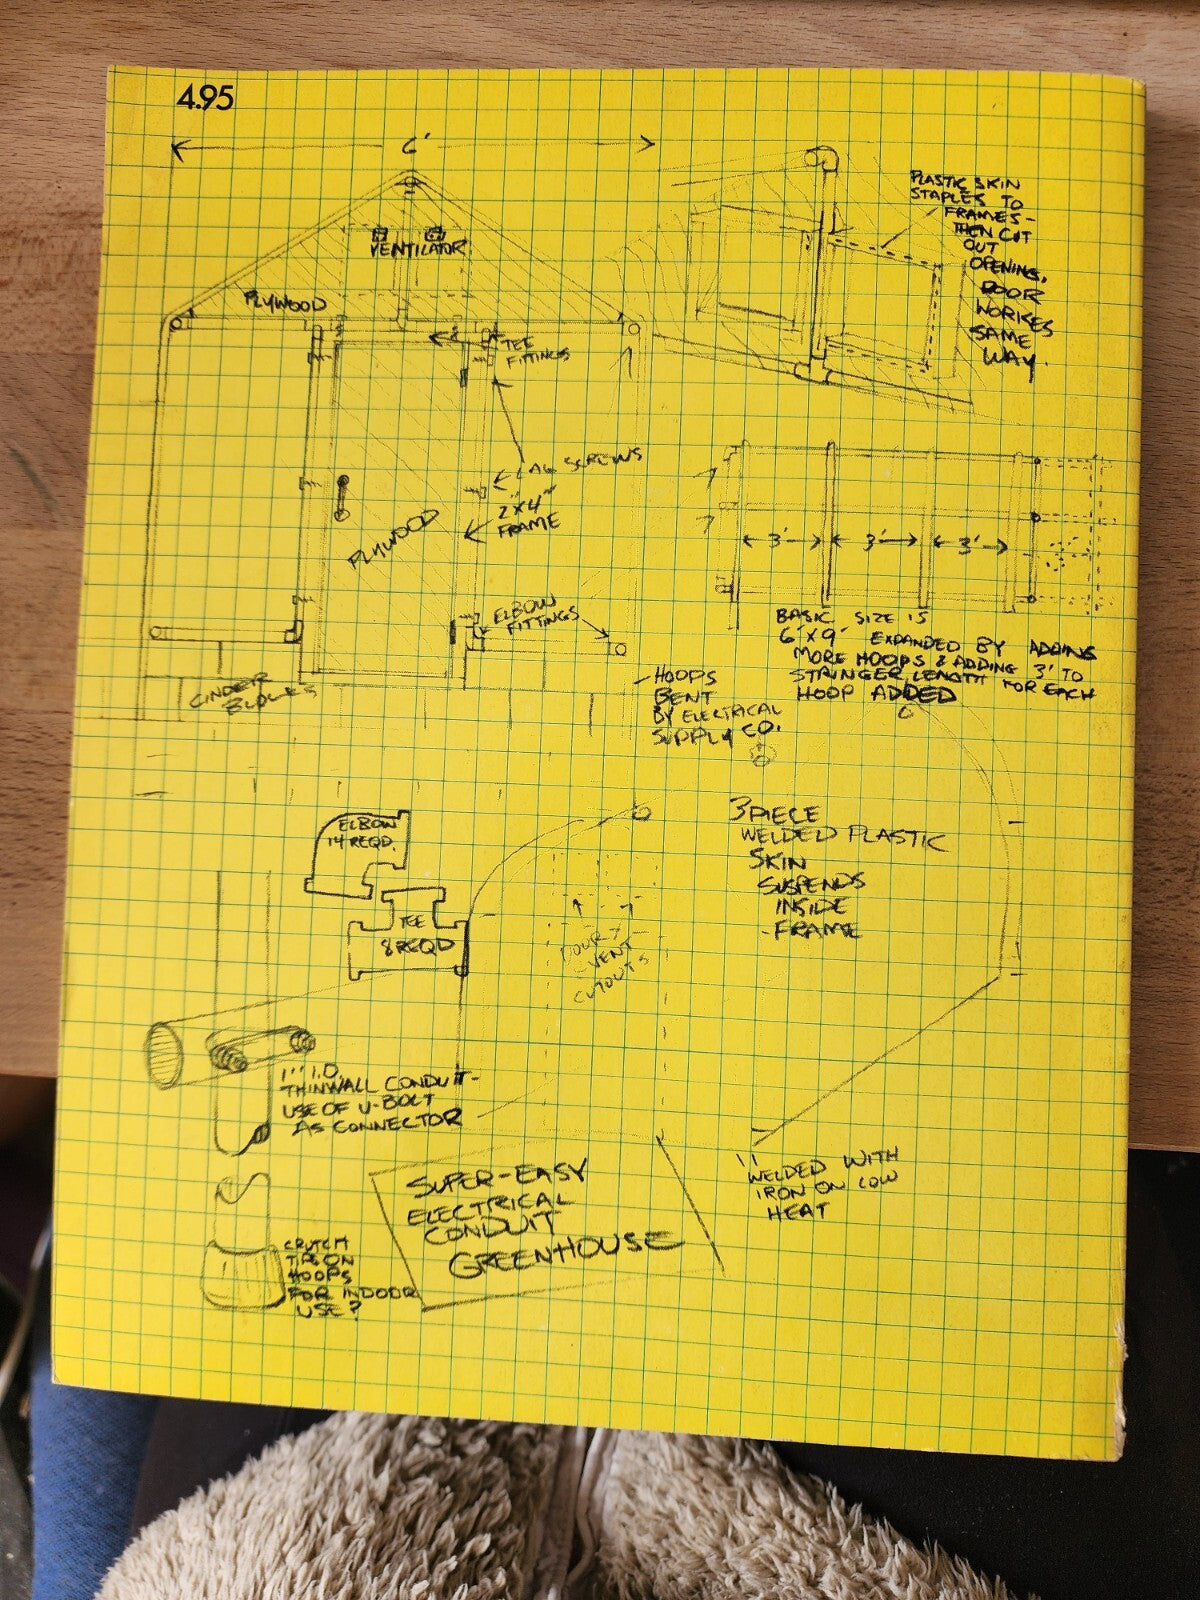 4.95
6'
VENTILATOR
PLYWOOD
TEE
FITTINGS
LAG SCREWS
2"X4"
FRAME
PLYWOOD
ELBOW
FITTINGS
CINDER
BLOCKS
PLASTIC SKIN
STAPLES TO
FRAMES-
THEN CUT
OUT
OPENING.
DOOR
WORKES
SAME
WAY.
3' 3' 3'
BASIC SIZE IS
6'X9' EXPANDED BY ADDING
MORE HOOPS & ADDING 3' TO
STRINGER LENGTH FOR EACH
HOOP ADDED
HOOPS
BENT
BY ELECTRICAL
SUPPLY CO.
ELBOW
14 REQD.
TEE
8 REQD
DOOR &
VENT
CUTOUTS
3 PIECE
WELDED PLASTIC
SKIN
SUSPENDS
INSIDE
FRAME
1" I.D.
THINWALL CONDUIT-
USE OF U-BOLT
AS CONNECTOR
WELDED WITH
IRON ON LOW
HEAT
SUPER-EASY
ELECTRICAL
CONDUIT
GREENHOUSE
CRUTCH
TIPS ON
HOOPS
FOR INDOOR
USE?